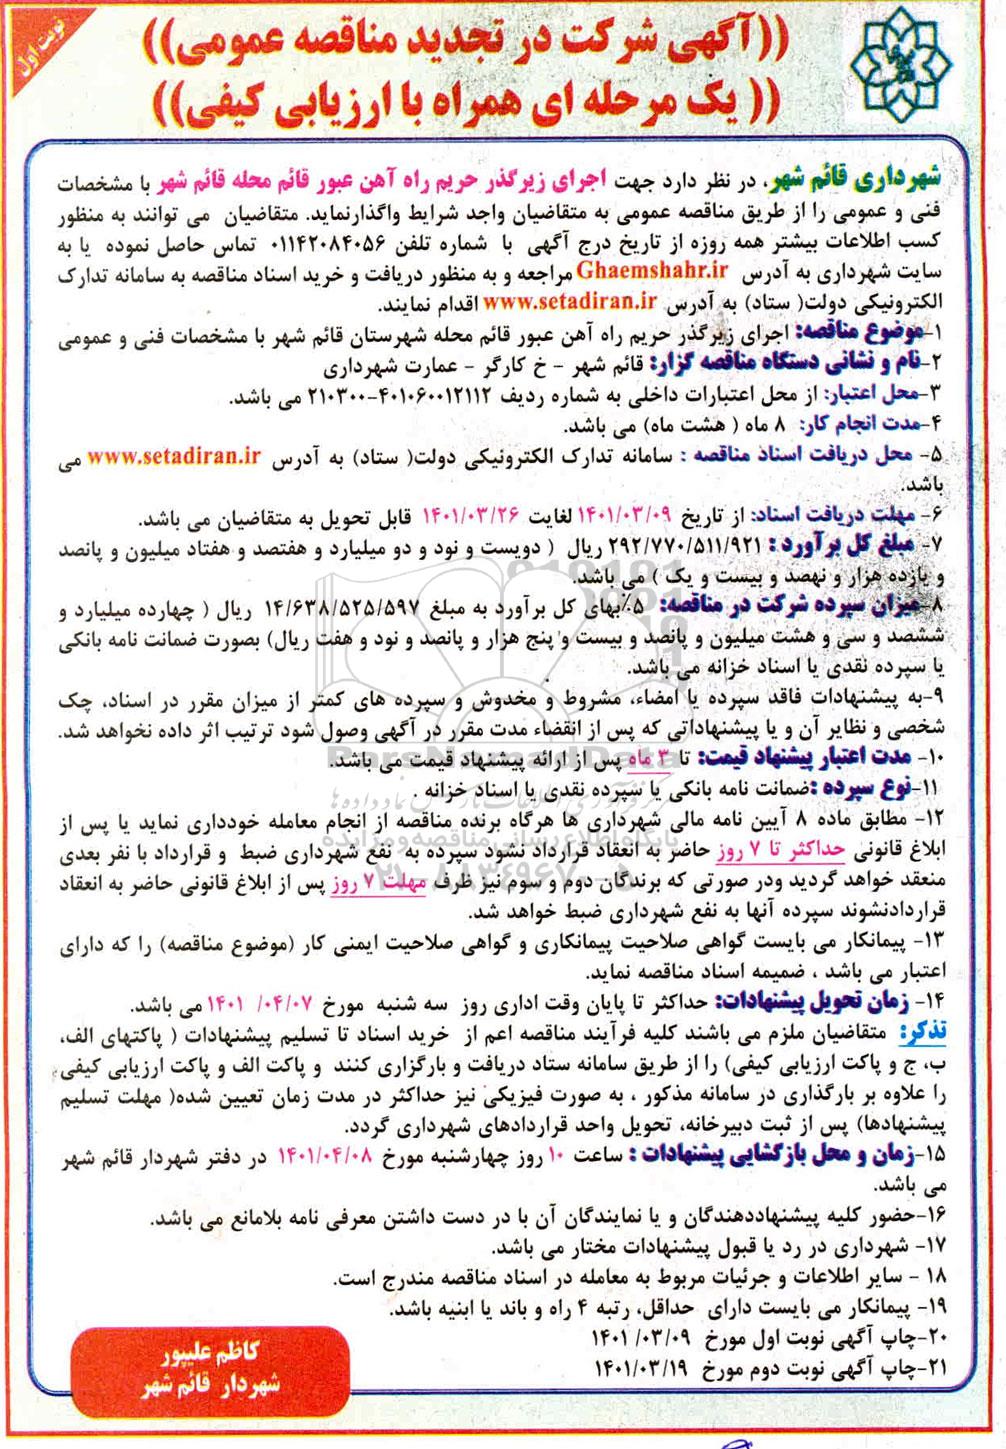 نوبت اول
((آگهی شرکت در تجدید مناقصه عمومی))
((یک مرحله ای همراه با ارزیابی کیفی))
شهرداری قائم شهر، در نظر دارد جهت اجرای زیرگذر حریم راه آهن عبور قائم محله قائم شهر با مشخصات
فنی و عمومی را از طریق مناقصه عمومی به متقاضیان واجد شرایط واگذارنماید. متقاضیان می توانند به منظور
کسب اطلاعات بیشتر همه روزه از تاریخ درج آگهی با شماره تلفن ۰۱۱۴۲۰۸۴۰۵۶ تماس حاصل نموده یا به
سایت شهرداری به آدرس Ghaemshahr.ir مراجعه و به منظور دریافت و خرید اسناد مناقصه به سامانه تدارک
الکترونیکی دولت( ستاد) به آدرس www.setadiran.ir اقدام نمایند.
۱-موضوع مناقصه: اجرای زیرگذر حریم راه آهن عبور قائم محله شهرستان قائم شهر با مشخصات فنی و عمومی
۲-نام و نشانی دستگاه مناقصه گزار: قائم شهر - خ کارگر - عمارت شهرداری
۳-محل اعتبار: از محل اعتبارات داخلی به شماره ردیف ۴۰۱۰۶۰۰۱۲۱۱۲-۲۱۰۳۰۰ می باشد.
۴-مدت انجام کار: ۸ ماه ( هشت ماه) می باشد.
۵- محل دریافت اسناد مناقصه : سامانه تدارک الکترونیکی دولت( ستاد) به آدرس www.setadiran.ir می
باشد.
۶- مهلت دریافت اسناد: از تاریخ ۱۴۰۱/۰۳/۰۹ لغایت ۱۴۰۱/۰۳/۲۶ قابل تحویل به متقاضیان می باشد.
۷- مبلغ کل برآورد : ۲۹۲/۷۷۰/۵۱۱/۹۲۱ ریال ( دویست و نود و دو میلیارد و هفتصد و هفتاد میلیون و پانصد
و یازده هزار و نهصد و بیست و یک ) می باشد.
۸-میزان سپرده شرکت در مناقصه: ۵٪بهای کل برآورد به مبلغ ۱۴/۶۳۸/۵۲۵/۵۹۷ ریال ( چهارده میلیارد و
ششصد و سی و هشت میلیون و پانصد و بیست و پنج هزار و پانصد و نود و هفت ریال) بصورت ضمانت نامه بانکی
یا سپرده نقدی یا اسناد خزانه می باشد.
۹-به پیشنهادات فاقد سپرده یا امضاء، مشروط و مخدوش و سپرده های کمتر از میزان مقرر در اسناد، چک
شخصی و نظایر آن و یا پیشنهاداتی که پس از انقضاء مدت مقرر در آگهی وصول شود ترتیب اثر داده نخواهد شد.
۱۰- مدت اعتبار پیشنهاد قیمت: تا ۳ ماه پس از ارائه پیشنهاد قیمت می باشد.
ParsNamadData
۱۱-نوع سپرده :ضمانت نامه بانکی یا سپرده نقدی یا اسناد خزانه .
۱۲- مطابق ماده ۸ آیین نامه مالی شهرداری ها هرگاه برنده مناقصه از انجام معامله خودداری نماید یا پس از
پایگاه اطلاع رسانی مناقصه و مزایده
ابلاغ قانونی حداکثر تا ۷ روز حاضر به انعقاد قرارداد نشود سپرده به نفع شهرداری ضبط و قرارداد با نفر بعدی
۰۲۱-۸۸۳۴۹۶۷۰-۵
منعقد خواهد گردید ودر صورتی که برندگان دوم و سوم نیز ظرف مهلت ۷ روز پس از ابلاغ قانونی حاضر به انعقاد
قراردادنشوند سپرده آنها به نفع شهرداری ضبط خواهد شد.
۱۳- پیمانکار می بایست گواهی صلاحیت پیمانکاری و گواهی صلاحیت ایمنی کار (موضوع مناقصه) را که دارای
اعتبار می باشد ، ضمیمه اسناد مناقصه نماید.
۱۴- زمان تحویل پیشنهادات: حداکثر تا پایان وقت اداری روز سه شنبه مورخ ۱۴۰۱ /۰۴/۰۷ می باشد.
تذکر: متقاضیان ملزم می باشند کلیه فرآیند مناقصه اعم از خرید اسناد تا تسلیم پیشنهادات ( پاکتهای الف،
ب، ج و پاکت ارزیابی کیفی) را از طریق سامانه ستاد دریافت و بارگزاری کنند و پاکت الف و پاکت ارزیابی کیفی
را علاوه بر بارگذاری در سامانه مذکور ، به صورت فیزیکی نیز حداکثر در مدت زمان تعیین شده( مهلت تسلیم
پیشنهادها) پس از ثبت دبیرخانه، تحویل واحد قراردادهای شهرداری گردد.
۱۵-زمان و محل بازگشایی پیشنهادات : ساعت ۱۰ روز چهارشنبه مورخ ۱۴۰۱/۰۴/۰۸ در دفتر شهردار قائم شهر
می باشد.
۱۶-حضور کلیه پیشنهاددهندگان و یا نمایندگان آن با در دست داشتن معرفی نامه بلامانع می باشد.
۱۷- شهرداری در رد یا قبول پیشنهادات مختار می باشد.
۱۸ - سایر اطلاعات و جرئیات مربوط به معامله در اسناد مناقصه مندرج است.
۱۹- پیمانکار می بایست دارای حداقل، رتبه ۴ راه و باند یا ابنیه باشد.
۲۰-چاپ آگهی نوبت اول مورخ ۱۴۰۱ /۰۳/۰۹
۲۱-چاپ آگهی نوبت دوم مورخ ۱۴۰۱/۰۳/۱۹
کاظم علیپور
شهردار قائم شهر